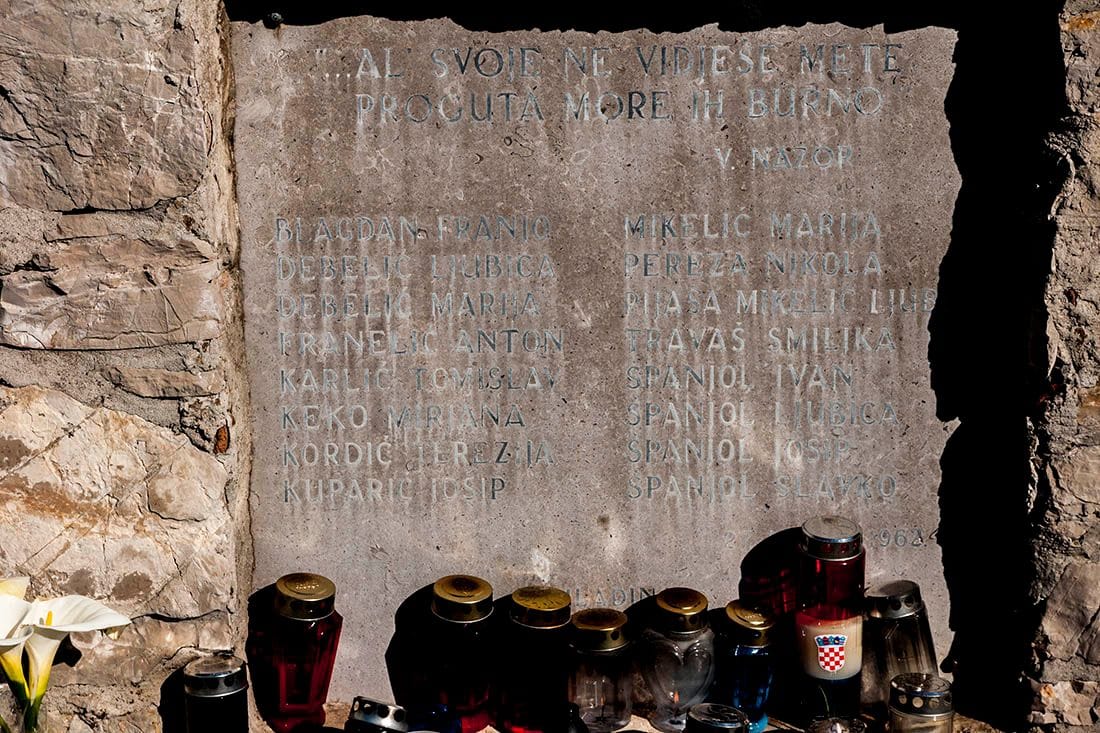 "...AL SVOJE NE VIDJEŠE METE
PROGUTA MORE IH BURNO
V. NAZOR
BLAGDAN FRANJO
DEBELIĆ LJUBICA
DEBELIĆ MARIJA
FRANELIĆ ANTON
KARLIĆ TOMISLAV
KEKO MIRJANA
KORDIĆ TEREZIJA
KUPARIĆ JOSIP
MIKELIĆ MARIJA
PEREZA NIKOLA
PIJAŠA MIKELIĆ LJUB
TRAVAŠ SMILJKA
ŠPANJOL IVAN
ŠPANJOL LJUBICA
ŠPANJOL JOSIP
ŠPANJOL SLAVKO